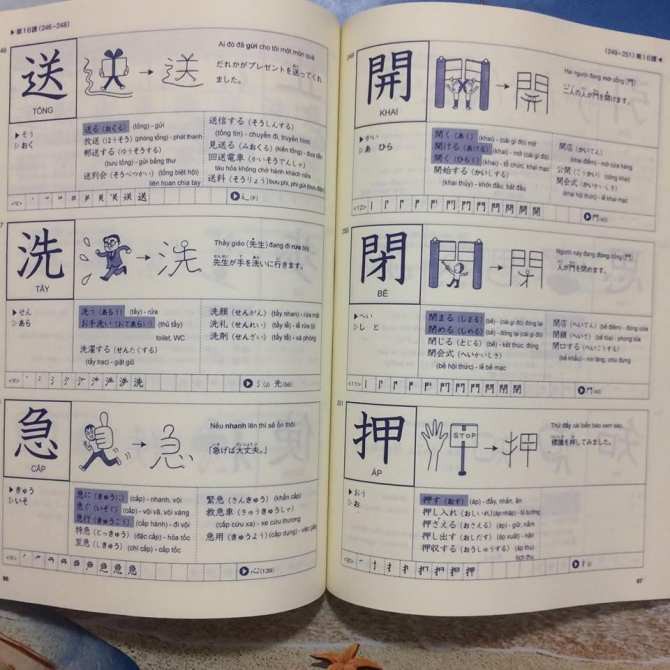 ▶第16課(246~248)
送
TỐNG
Ai đó đã gửi cho tôi một món quà
だれかがプレゼントを送ってくれ
ました。
▶そう
▷おく
送る(おくる)(tống) - gửi
放送(ほうそう)(phóng tống) - phát thanh
郵送する(ゆうそうする)
(bưu tống) - gửi bằng thư
送別会(そうべつかい)(tống biệt hội)
liên hoan chia tay
送信する(そうしんする)
(tống tín) - chuyển đi, truyền hình
見送る(みおくる)(kiến tống) - đưa tiễn
回送電車(かいそうでんしゃ)
tàu hỏa không chở hành khách
送料(そうりょう)
洗
TẨY
Thầy giáo (先生) đang đi rửa
先生が手を洗いに行きます。
▶せん
▷あら
洗う(あらう)(tẩy) - rửa
お手洗い(おてあらい)(thủ tẩy)
toilet, WC
洗濯する(せんたくする)
(tẩy trạc) - giặt giũ
洗顔(せんがん)(tẩy nhan) - rửa mặt
洗礼(せんれい)(tẩy lễ) - lễ rửa tội
洗剤(せんざい)(tẩy tễ) - xà phòng
急
CẤP
Nếu nhanh lên thì sẽ ổn thôi
「急げば大丈夫。」
▶きゅう
▷いそ
急に(きゅうに)(cấp) - nhanh, vội
急ぐ(いそぐ)(cấp) - vội vã, vội vàng
急行(きゅうこう)(cấp hành) - đi vội
特急(とっきゅう)(đặc cấp) - hỏa tốc
至急(しきゅう)(chí cấp) - cấp tốc
緊急(きんきゅう)(khẩn cấp)
救急車(きゅうきゅうしゃ)
(cấp cứu xa) - xe cứu thương
急用(きゅうよう)(cấp dụng) - việc gấp
心(139)
96
(249~251) 第16課◀
開
KHAI
Hai người đang mở cổng (門)
二人の人が門を開けます。
▶かい
▷あ ひら
開く(あく)(khai) - (cái gì đó) mở
開ける(あける)(khai) - mở (cái gì đó)
開く(ひらく)(khai) - tổ chức, khai mạc
開始する(かいしする)
(khai thủy) - khởi đầu, bắt đầu
開店(かいてん)
(khai điếm) - mở cửa hàng
公開(こうかい)(công khai)
開会式(かいかいしき)
(khai hội thức) - lễ khai mạc
閉
BẾ
Người này đang đóng cổng (門)
人が門を閉めます。
▶へい
▷し と
閉まる(しまる)(bế) - (cái gì đó) đóng lại
閉める(しめる)(bế) - đóng (cái gì đó) lại
閉じる(とじる)(bế) - kết thúc, đóng
閉会式(へいかいしき)
(bế hội thức) - lễ bế mạc
閉店(へいてん)(bế điếm) - đóng cửa
閉鎖(へいさ)(bế tỏa) - phong tỏa
閉口する(へいこうする)
(bế khẩu) - im lặng, chịu đựng
押
ÁP
STOP
標識を押してみました。
▶おう
▷お
押す(おす)(áp) - đẩy, nhấn, ấn
押し入れ(おしいれ)(áp nhập) - tủ tường
押さえる(おさえる)(áp) - giữ, nắm
押し出す(おしだす)(áp xuất) - nặn
押収する(おうしゅうする)(áp thu)
tịch thu
97